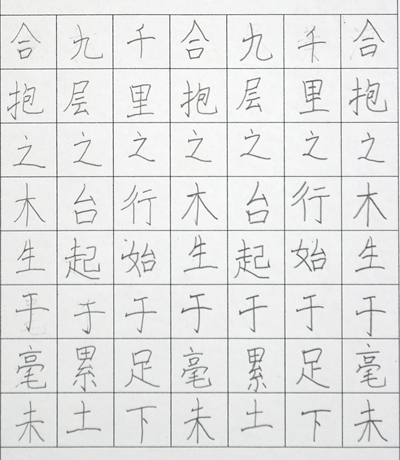 合抱之木生于毫未
九层之台起于累土
千里之行始于足下
合抱之木生于毫未
九层之台起于累土
千里之行始于足下
合抱之木生于毫未